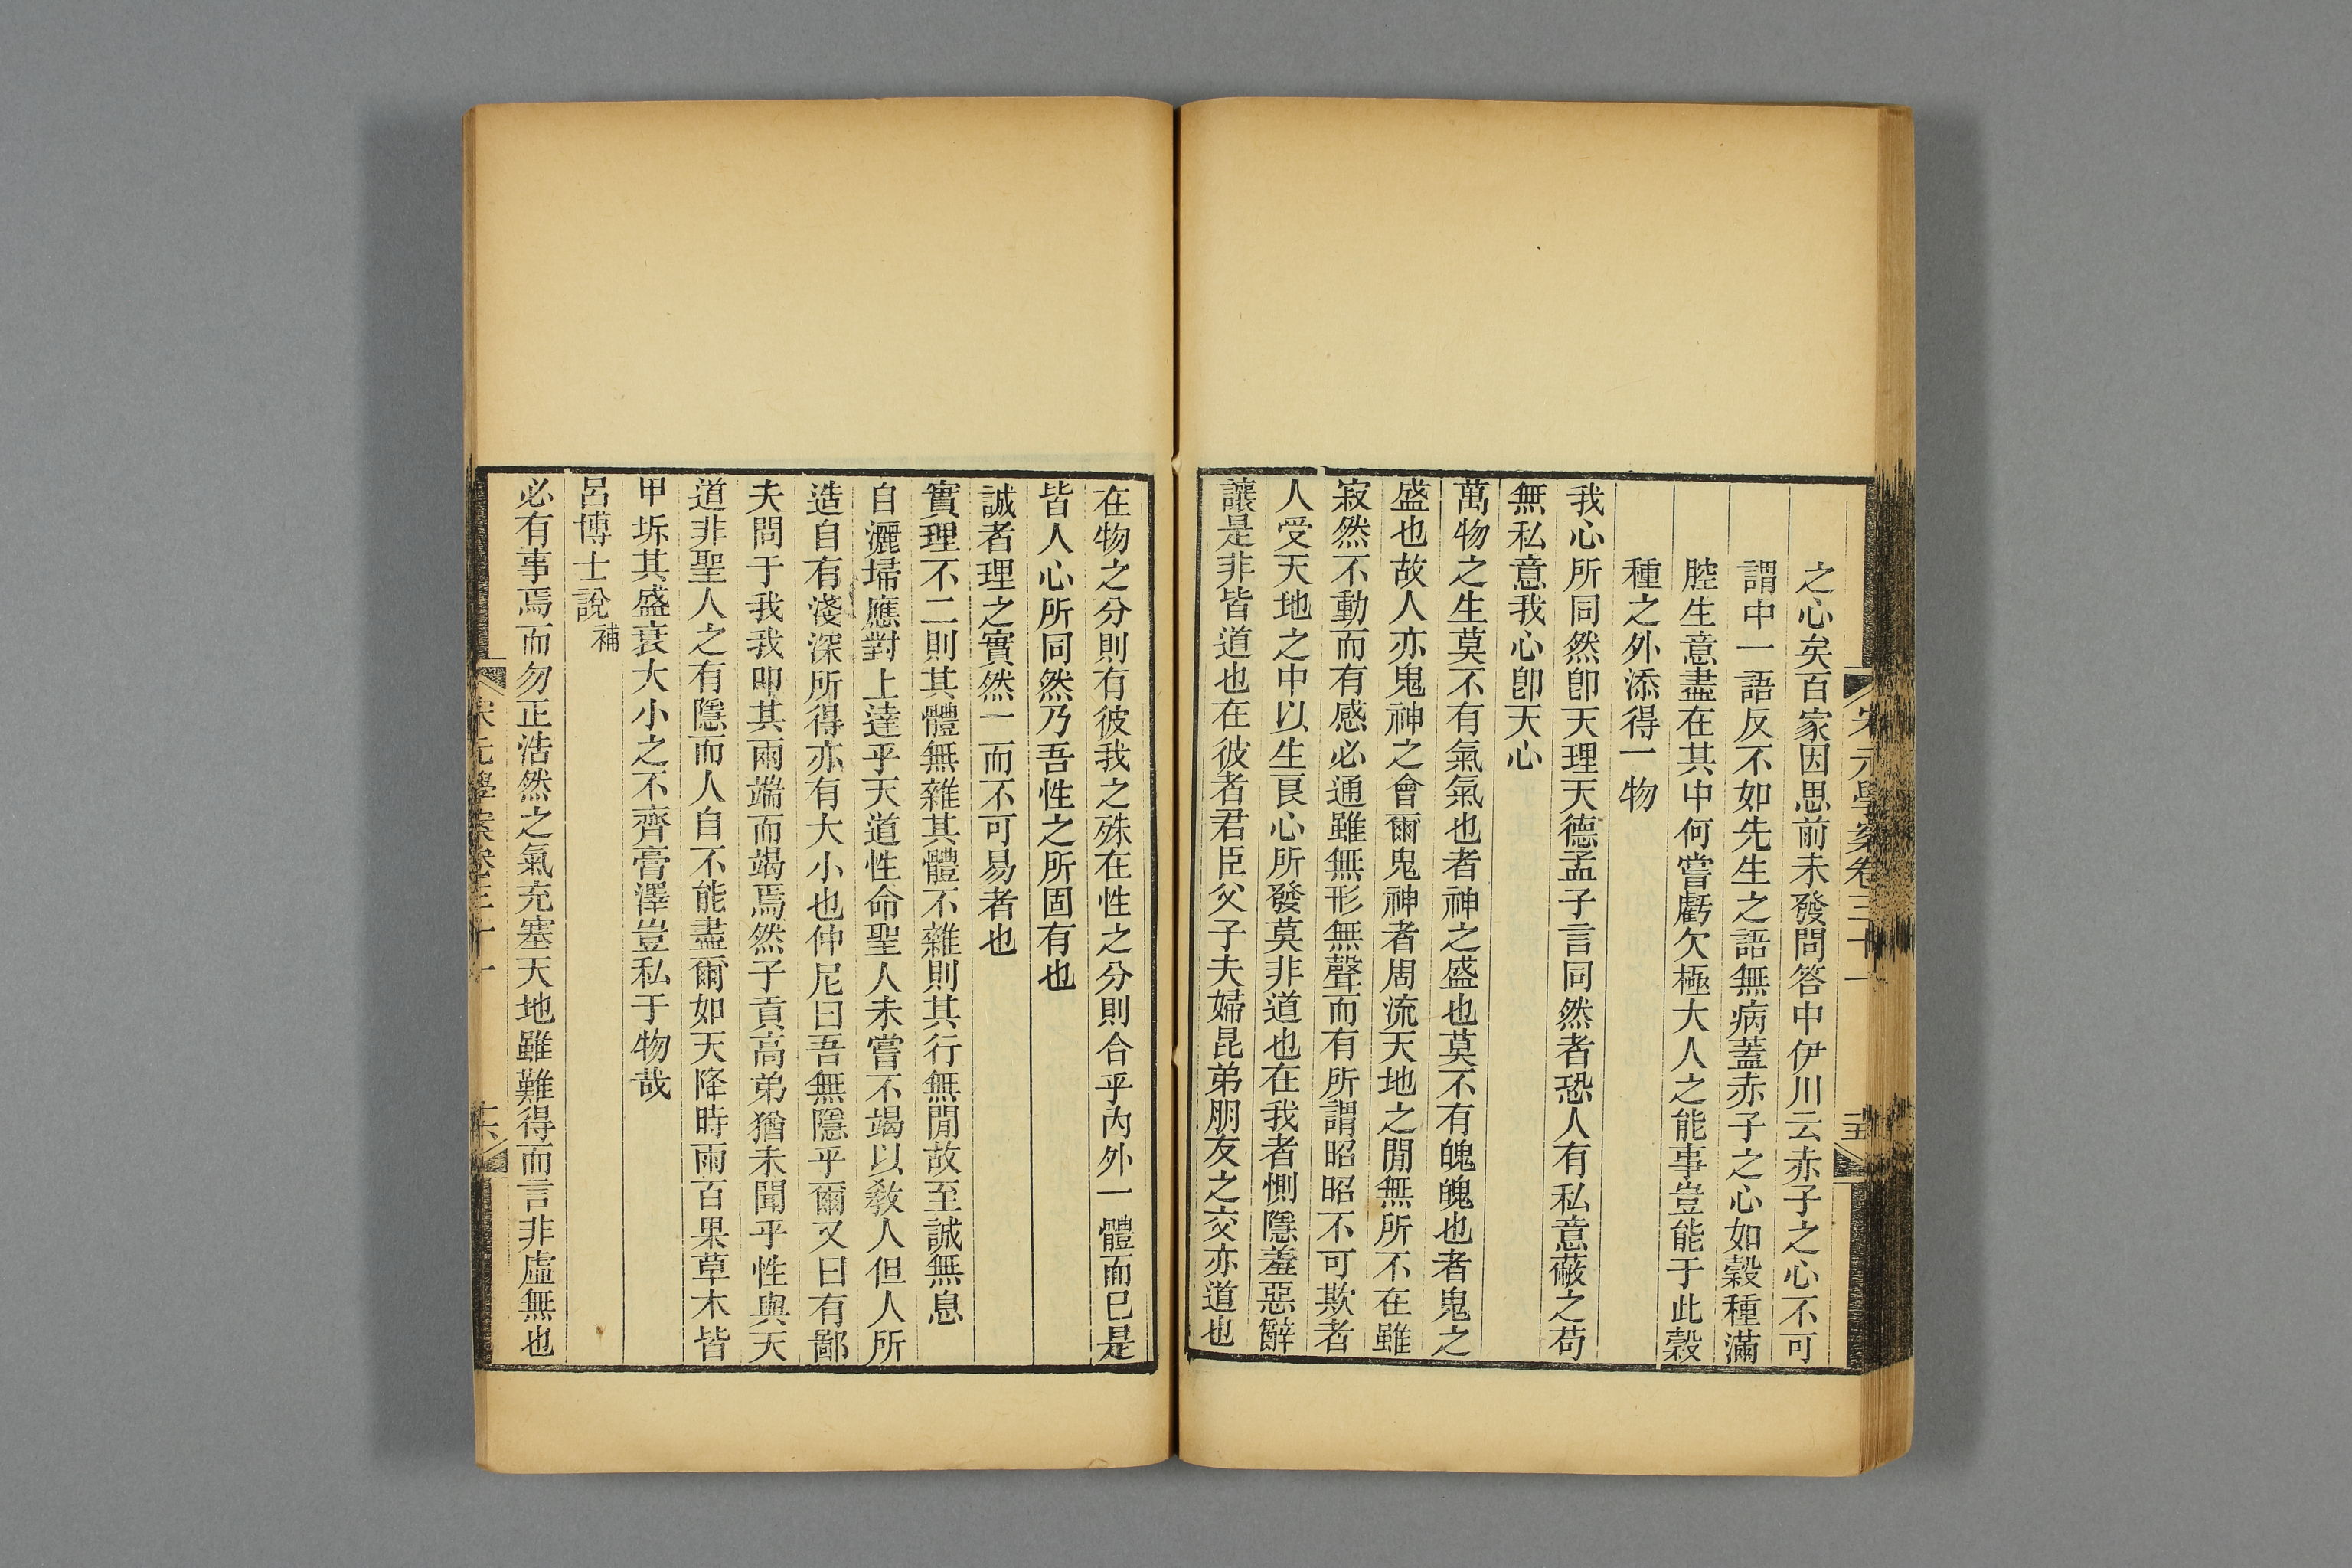 宋元學案卷三十一
之心矣百家因思前未發問答中伊川云赤子之心不可
謂中一語反不如先生之語無病蓋赤子之心如穀種滿
腔生意盡在其中何嘗虧欠極大人之能事豈能于此穀
種之外添得一物
我心所同然卽天理天德孟子言同然者恐人有私意蔽之苟
無私意我心卽天心
萬物之生莫不有氣氣也者神之盛也莫不有魄魄也者鬼之
盛也故人亦鬼神之會爾鬼神者周流天地之閒無所不在雖
寂然不動而有感必通雖無形無聲而有所謂昭昭不可欺者
人受天地之中以生良心所發莫非道也在我者惻隱羞惡辭
讓是非皆道也在彼者君臣父子夫婦昆弟朋友之交亦道也
在物之分則有彼我之殊在性之分則合乎內外一體而已是
皆人心所同然乃吾性之所固有也
誠者理之實然一而不可易者也
實理不二則其體無雜其體不雜則其行無閒故至誠無息
自灑埽應對上達乎天道性命聖人未嘗不竭以敎人但人所
造自有淺深所得亦有大小也仲尼曰吾無隱乎爾又曰有鄙
夫問于我我叩其兩端而竭焉然子貢高弟猶未聞乎性與天
道非聖人之有隱而人自不能盡爾如天降時雨百果草木皆
甲坼其盛衰大小之不齊膏澤豈私于物哉
呂博士說補
必有事焉而勿正浩然之氣充塞天地雖難得而言非虛無也
宋元學案卷三十一